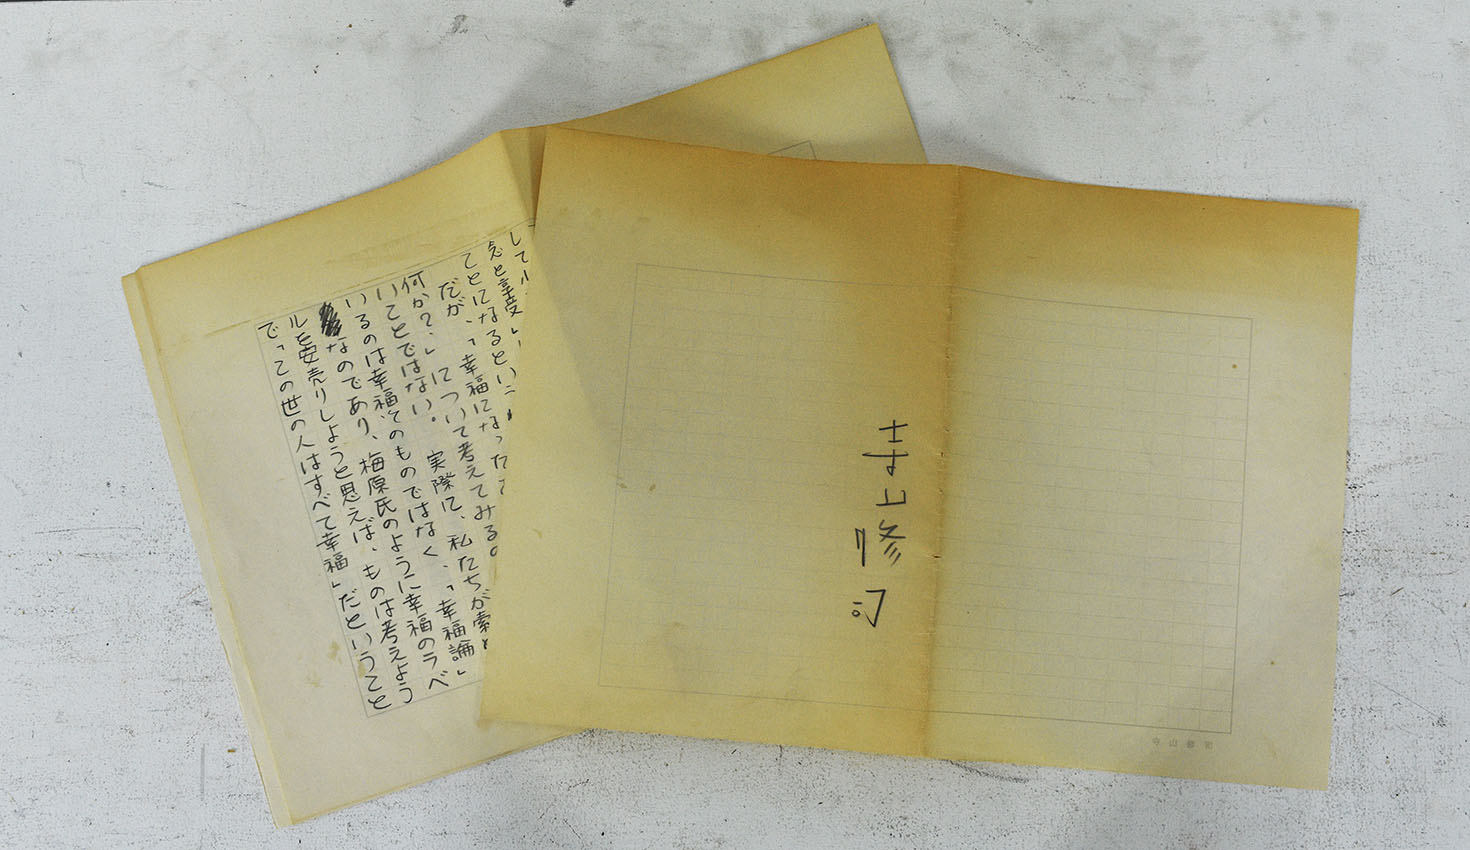 して
念を享受」
てとになるとい
だが、「幸福になった
何か?」について考えてみる。
いことではない。実際に、私たちが索
いるのは幸福そのものではなく、「幸福論」
なのであり、梅原氏のように幸福のラベ
ルを安売りしようと思えば、ものは考えよう
で「この世の人はすべて幸福」だということ
寺山修司
寺山修司